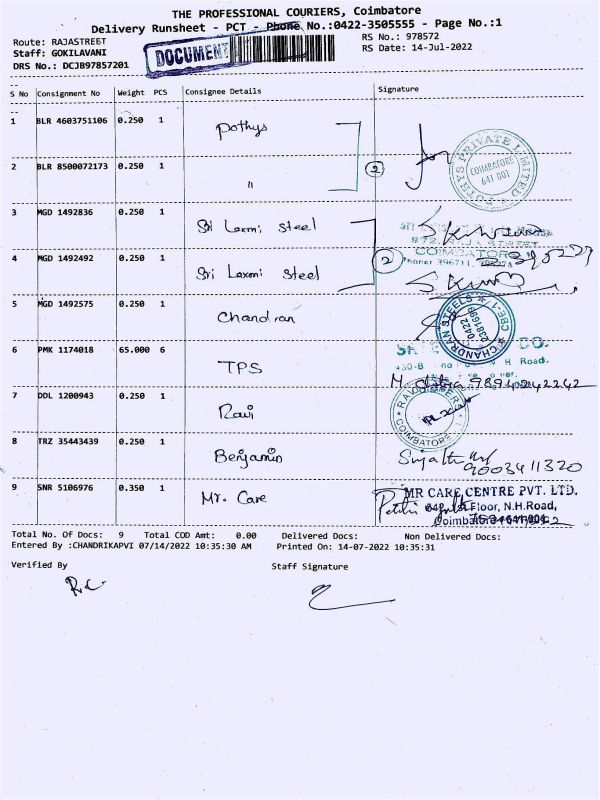 THE PROFESSIONAL COURIERS, Coimbatore
Delivery Runsheet - PCT - Phone No.:0422-3505555 - Page No.:1
Route: RAJASTREET
RS No.: 978572
Staff: GOKILAVANI
RS Date: 14-Jul-2022
DRS No.: DCJB97857201
DOCUMENT
S No Consignment No Weight PCS Consignee Details Signature
1 BLR 4603751106 0.250 1 Pothys
POTHYS PRIVATE LIMITED
COIMBATORE
641 001
2 BLR 8500072173 0.250 1 " 2
3 MGD 1492836 0.250 1 Sri Laxmi Steel
4 MGD 1492492 0.250 1 Sri Laxmi Steel 2
5 MGD 1492575 0.250 1 Chandran
CHANDRAN STEELS CBE-1
0422
6 PMK 1174018 65.000 6 TPS
CO.
H Road.
98942 42242
7 DDL 1200943 0.250 1 Ravi
COIMBATORE
8 TRZ 35443439 0.250 1 Benjamin
9003411320
9 SNR 5106976 0.350 1 Mr. Care
MR CARE CENTRE PVT. LTD.
Floor, N.H.Road,
Total No. Of Docs: 9 Total COD Amt: 0.00 Delivered Docs: Non Delivered Docs:
Entered By :CHANDRIKAPVI 07/14/2022 10:35:30 AM Printed On: 14-07-2022 10:35:31
Verified By Staff Signature
R.C.